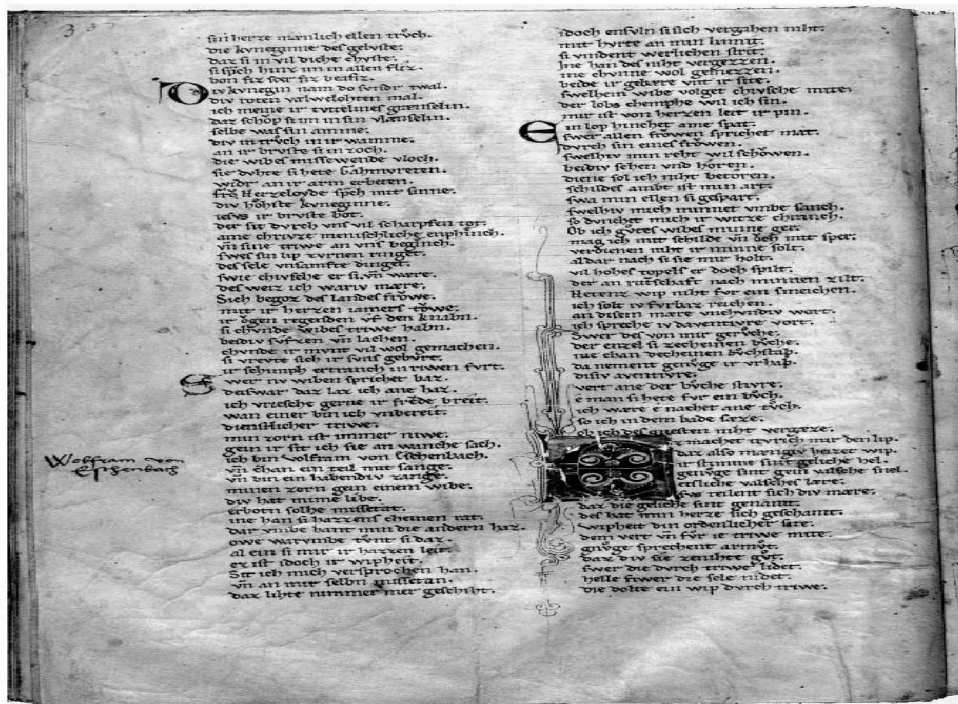 sin herze manlich ellen trvͦch.
die kvneginne des gelvste.
daz si in vil dicke chvste.
si sp̄ch hinz im in allen fliz.
bon fiz scir fiz beafiz.
Div kvnegin nam do svnder twal.
div roten vælwelohten mal.
ich meine ir tvttelines grænselin.
daz schop si im in sin vlænselin.
selbe was sin amme.
div in trvͦch in ir wamme.
an ir brvste si in zoch.
die wibes missewende vloch.
si dvhte si hete Gahmvreten.
wider an ir arm erbeten.
frov Herzeloyde sp̄ch mit sinne.
div hohste kvneginne.
iesvs ir brvste bot.
der sit dvrch vns vil scharpfen tot.
ame chrivze mennischliche enphiench.
vn̄ sine triwe an vns begiench.
swes sin lip zvrnen ringet.
des sele vnsamfte dinget.
swie chivsche er si vn̄ wære.
des weiz ich wariv mære.
Sich begoz des landes frowe.
mit ir herzen iamers towe.
ir ovgen regenden vf den knabn.
si chvnde wibes triwe habn.
beidiv svfzen vn̄ lachen.
chvnde ir mvnt vil wol gemachen.
si vrevte sich ir svns gebvrt.
ir schimph ertranch in riwen fvrt.
Swer nv wiben sprichet baz.
deiswar daz laz ich ane haz.
ich vriesche gerne ir frevde breit.
wan einer bin ich vnbereit.
dienstlicher triwe.
min zorn ist immer niwe.
gein ir sit ich sie an wanche sach.
ich bin wolfram von Eschenbach.
vn̄ chan ein teil mit sange.
vn̄ bin ein habendiv zange.
minen zorn gein einem wibe.
div hat mime libe.
erboten solhe missetat.
ine han si hazzens cheinen rat.
dar vmbe hant min die andern haz.
owe warvmbe tvͦnt si daz.
al ein si mir ir hazzen leit.
ez ist idoch ir wipheit.
Sit ich mich versprochen han.
vn̄ an mir selbn missetan.
daz lihte nimmer mer geschiht.
Wolfram von
Eschenbach
idoch ensvln si sich vergahen niht.
mit hvrte an min hamit.
si vindent werlichen strit.
Ine han des niht vergezzen.
ine chvnne wol gemezzen.
beide ir gebærde vnt ir site.
swelhem wibe volget chivsche mite.
der lobs chemphe wil ich sin.
mir ist von herzen leit ir pin.
Sin lop hinchet ame spat.
swer allen frowen sprichet mat.
dvrch sin eines frowen.
swelhiv min reht wil schowen.
beidiv sehen vnd horen.
diene sol ich niht betoren.
schildes ambt ist min art.
swa min ellen si gespart.
swelhiv mich minnet vmbe sanch.
so dvnchet mich ir witze chranch.
Ob ich gvtes wibes minne ger.
mag ich mit schilde vn̄ och mit sper.
verdienen niht ir minne solt.
al dar nach si sie mir holt.
vil hohes topels er doch spilt.
der an ritschaft nach minnen zilt.
Hetenz wip niht fvr ein smeichen.
ich solt iv fvrbaz reichen.
an disem mære vnchvndiv wort.
ich spreche iv daventivre vort.
Swer des von mir gervͦche.
der enzel si zecheinem bvͦche.
ine chan decheinen bvͦchstap.
da nement genvͦge ir vrhap.
disiv aventivre.
vert ane der bvͦche stivre.
e man si hete fvr ein bvͦch.
ich wære e nachet ane tvͦch.
so ich in dem bade sæze.
ob ich des qvesten niht vergæze.
Ez machet trvrich mir den lip.
daz also mængiv heizet wip.
ir stimme sint geliche hel.
genvͦge sint gein valsche snel.
etsliche valsches lære.
svs teilent sich div mære.
daz die geliche sint genamt.
des hat min herze sich geschamt.
wipheit din ordenlicher site.
dem vert vn̄ fvͦr ie triwe mite.
gnvͦge sprechent armvͦt.
daz div sie zenihte gvͦt.
swer die dvrch triwe lidet.
helle fiwer die sele midet.
die dolte ein wip dvrch triwe.